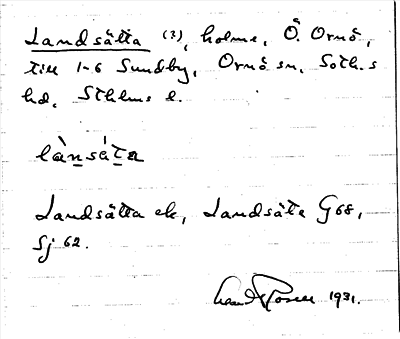 Landsätta (?), holme, Ö. Ornö,
till 1-6 Sundby, Ornö sn, Soth.s
hd, Sthlms l.
lànsá̀ta
Landsätta ek, Landsäte G68,
Sj 62.
1931.